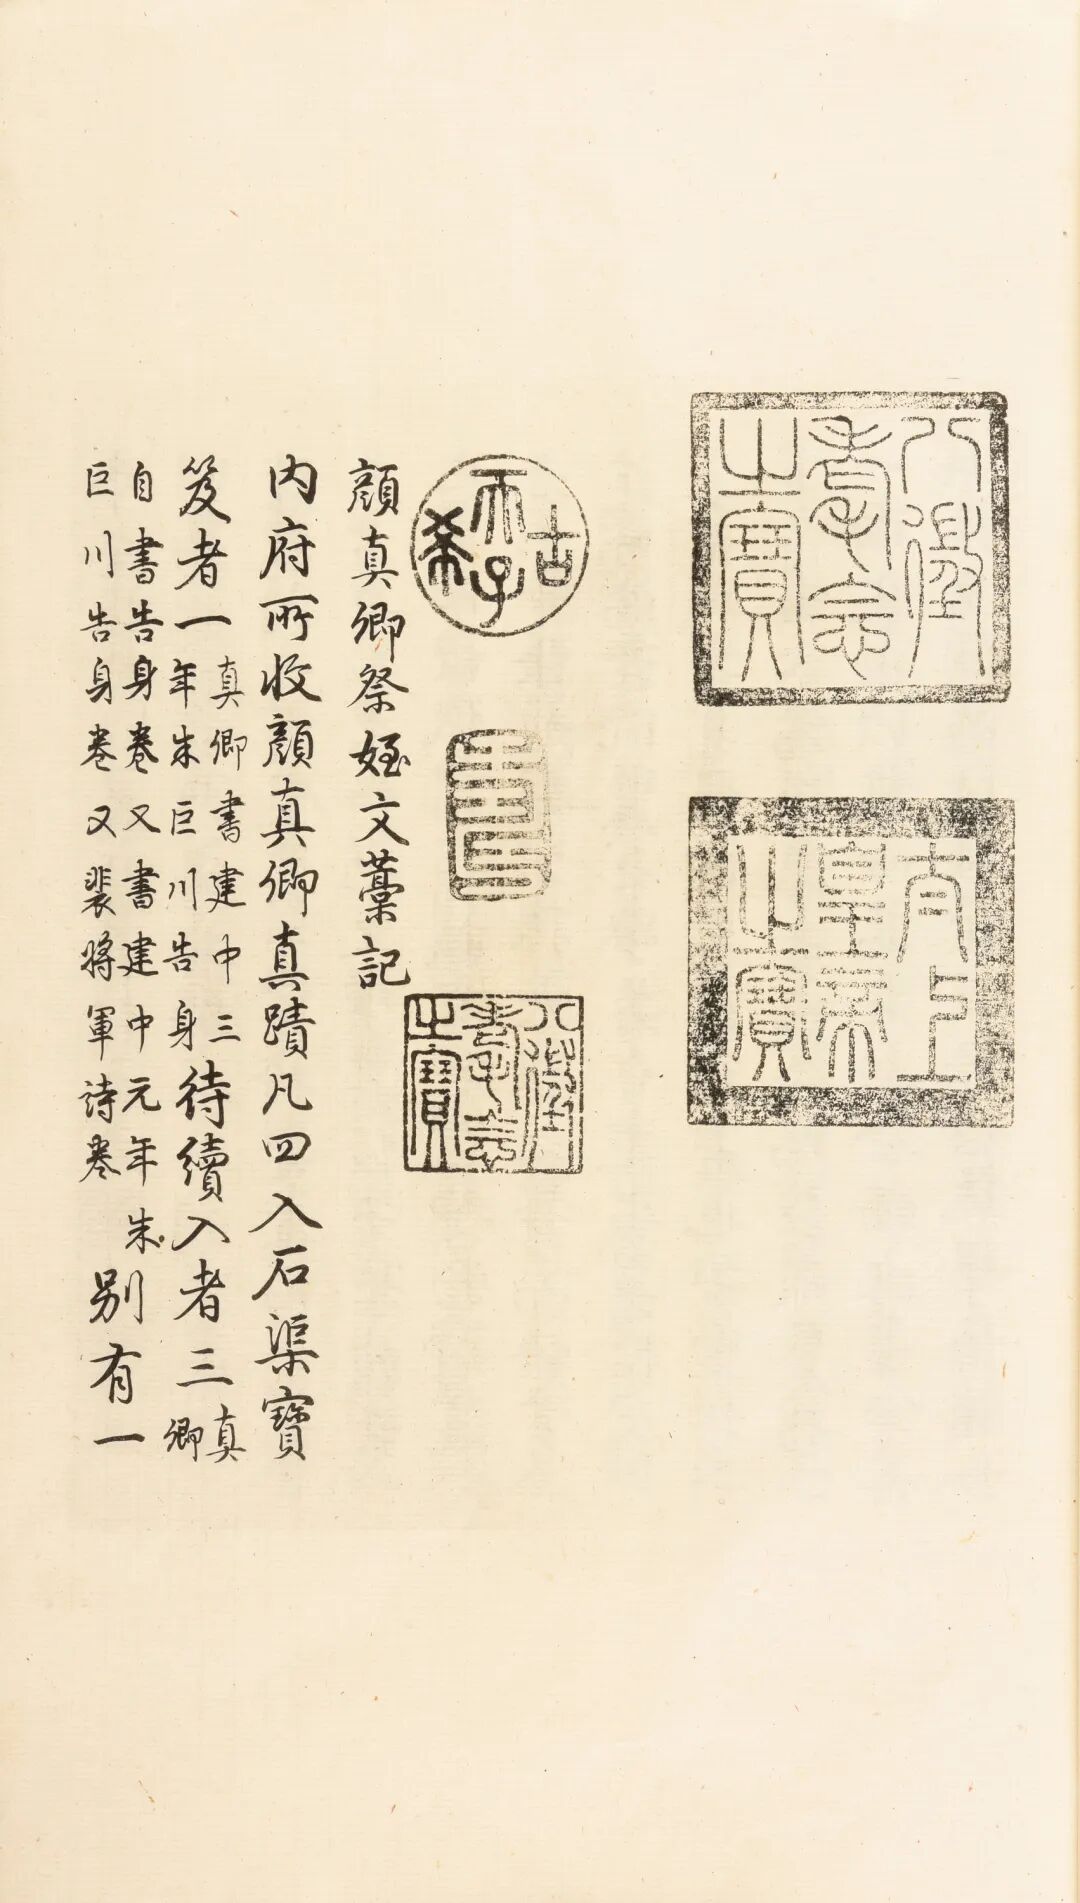 八徵耄念
之寶
太上
皇帝
之寶
古希天子
壽
八徵
耄念
之寶
顏真卿祭姪文藁記
內府所收顏真卿真蹟凡四入石渠寶
笈者一真卿書建中三年朱巨川告身待續入者三真卿
自書告身卷又書建中元年朱巨川告身卷又裴將軍詩卷別有一